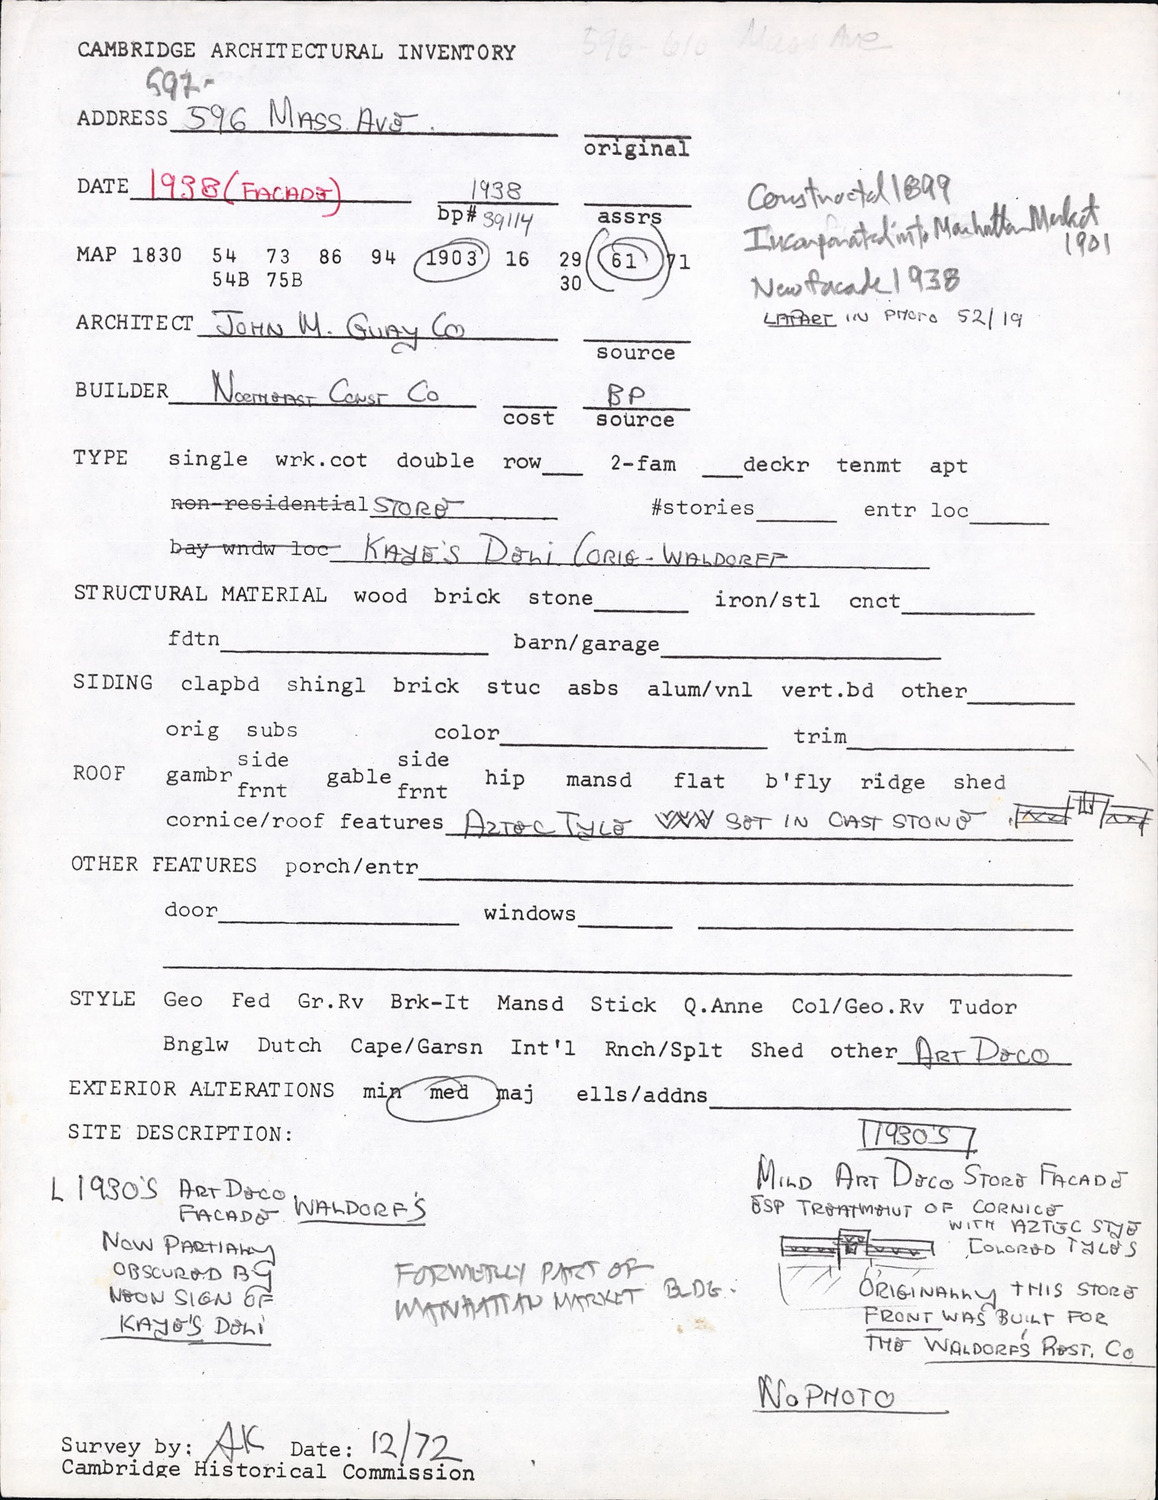 596-610 Mass Ave
CAMBRIDGE ARCHITECTURAL INVENTORY
592-
ADDRESS 596 MASS AVE.
original
DATE 1938 (FACADE) 1938
bp# 39114 assrs
Constructed 1899
Incorporated into Manhattan Market
1901
New facade 1938
MAP 1830 54 73 86 94 1903 16 29 61 71
54B 75B 30
IN PHOTO 52/19
ARCHITECT JOHN M. GUAY CO
source
BUILDER NORTHEAST CONST CO BP
cost source
TYPE single wrk.cot double row 2-fam deckr tenmt apt
non-residential STORE #stories entr loc
bay wndw loc KAYE'S DELI (ORIG-WALDORFF
STRUCTURAL MATERIAL wood brick stone iron/stl cnct
fdtn barn/garage
SIDING clapbd shingl brick stuc asbs alum/vnl vert.bd other
orig subs color trim
side side
ROOF gambr gable hip mansd flat b'fly ridge shed
frnt frnt
cornice/roof features AZTEC TYLE SET IN CAST STONE
OTHER FEATURES porch/entr
door windows
STYLE Geo Fed Gr.Rv Brk-It Mansd Stick Q.Anne Col/Geo.Rv Tudor
Bnglw Dutch Cape/Garsn Int'l Rnch/Splt Shed other ART DECO
EXTERIOR ALTERATIONS min med maj ells/addns
SITE DESCRIPTION:
1930'S
MILD ART DECO STORE FACADE
ESP TREATMENT OF CORNICE
WITH AZTEC STYE
COLORED TYLES
ORIGINALLY THIS STORE
FRONT WAS BUILT FOR
THE WALDORF'S REST. CO
NO PHOTO
L 1930'S ART DECO
FACADE WALDORF'S
NOW PARTIALLY
OBSCURED BY
NEON SIGN OF
KAYE'S DELI
FORMERLLY PART OF
MANHATTAN MARKET BLDG.
Survey by: AK Date: 12/72
Cambridge Historical Commission